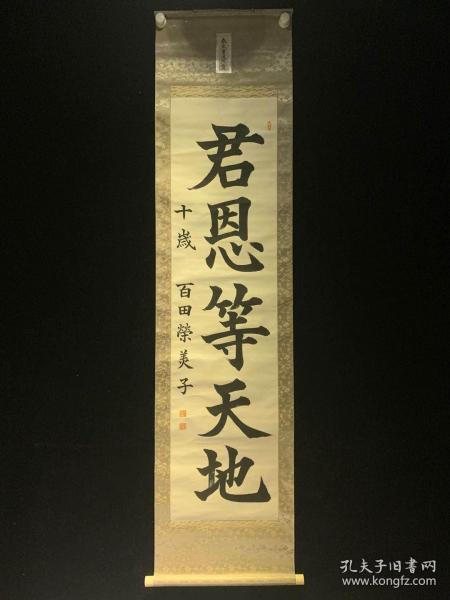 君恩等天地
十歳 百田榮美子
孔夫子旧书网
www.kongfz.com